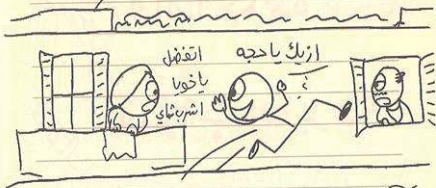 ازيك يا حجه
؟
اتفضل
يا خويا
اشرب شاي